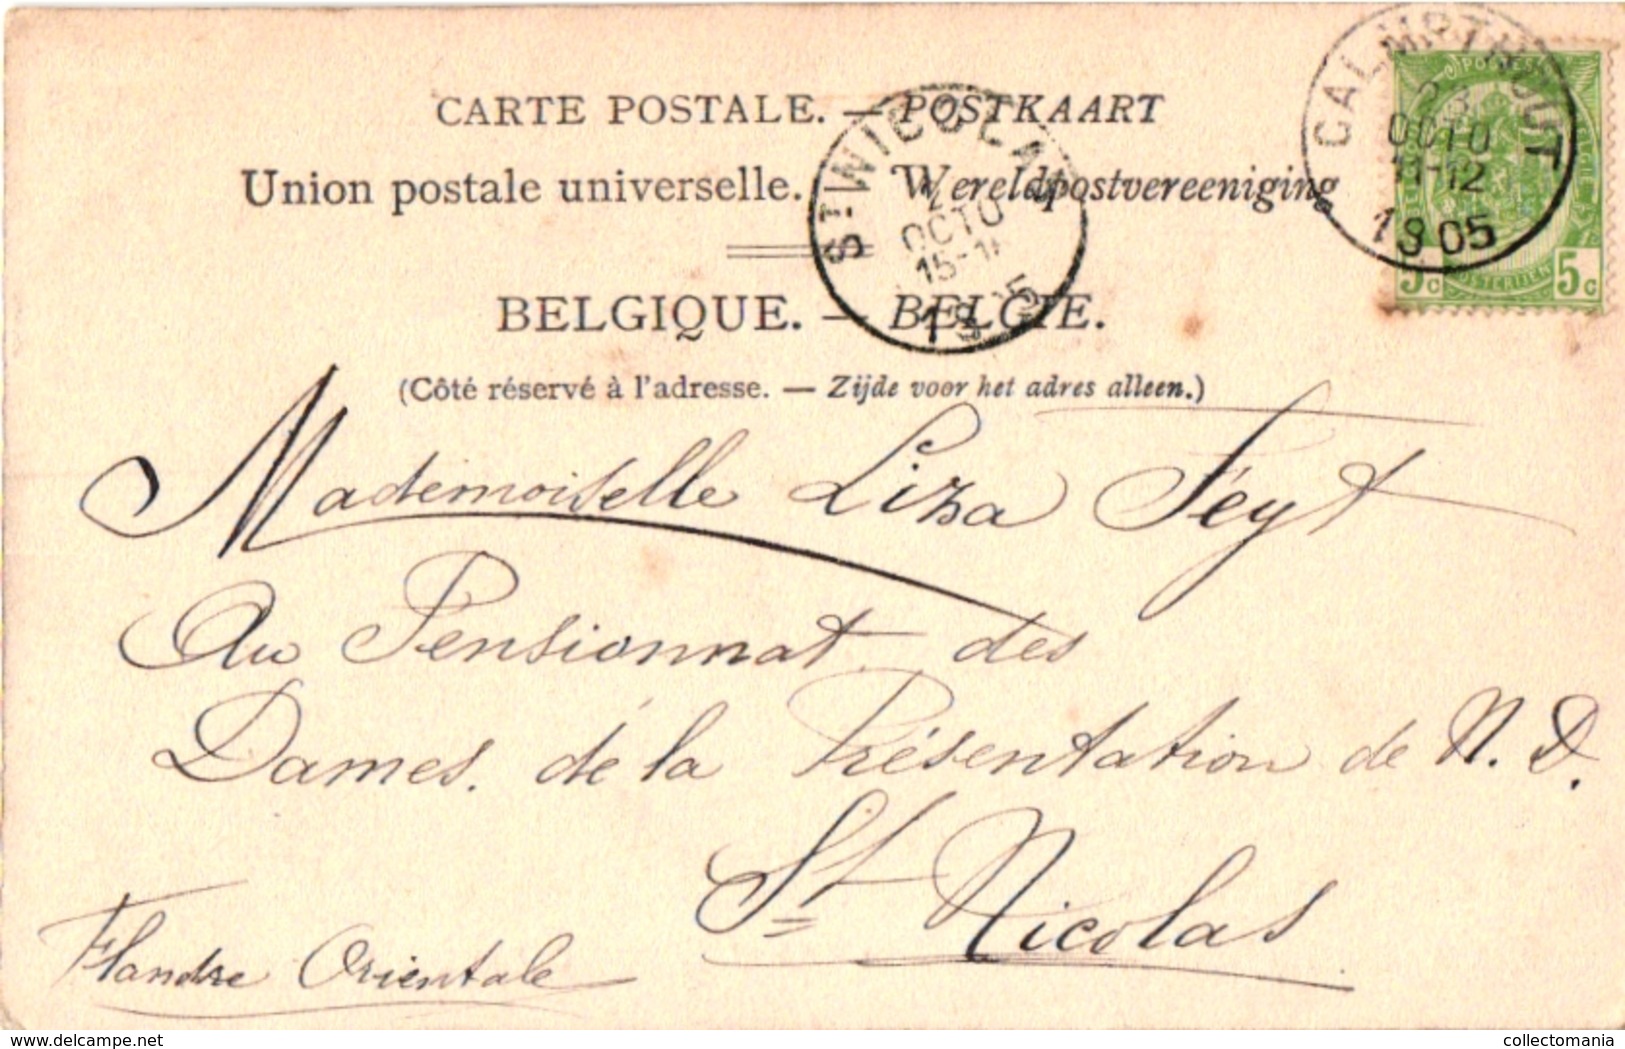 CARTE POSTALE. — POSTKAART
Union postale universelle. — Wereldpostvereeniging
BELGIQUE. — BELGIE.
(Côté réservé à l'adresse. — Zijde voor het adres alleen.)
CALMPTHOUT
23
OCTO
11-12
1905
ST NICOLA
OCTO
15-1
19 5
5c 5c
Mademoiselle Liza Feyt
Au Pensionnat des
Dames de la Présentation de N. D.
St Nicolas
Flandre Orientale
delcampe.net
collectomania